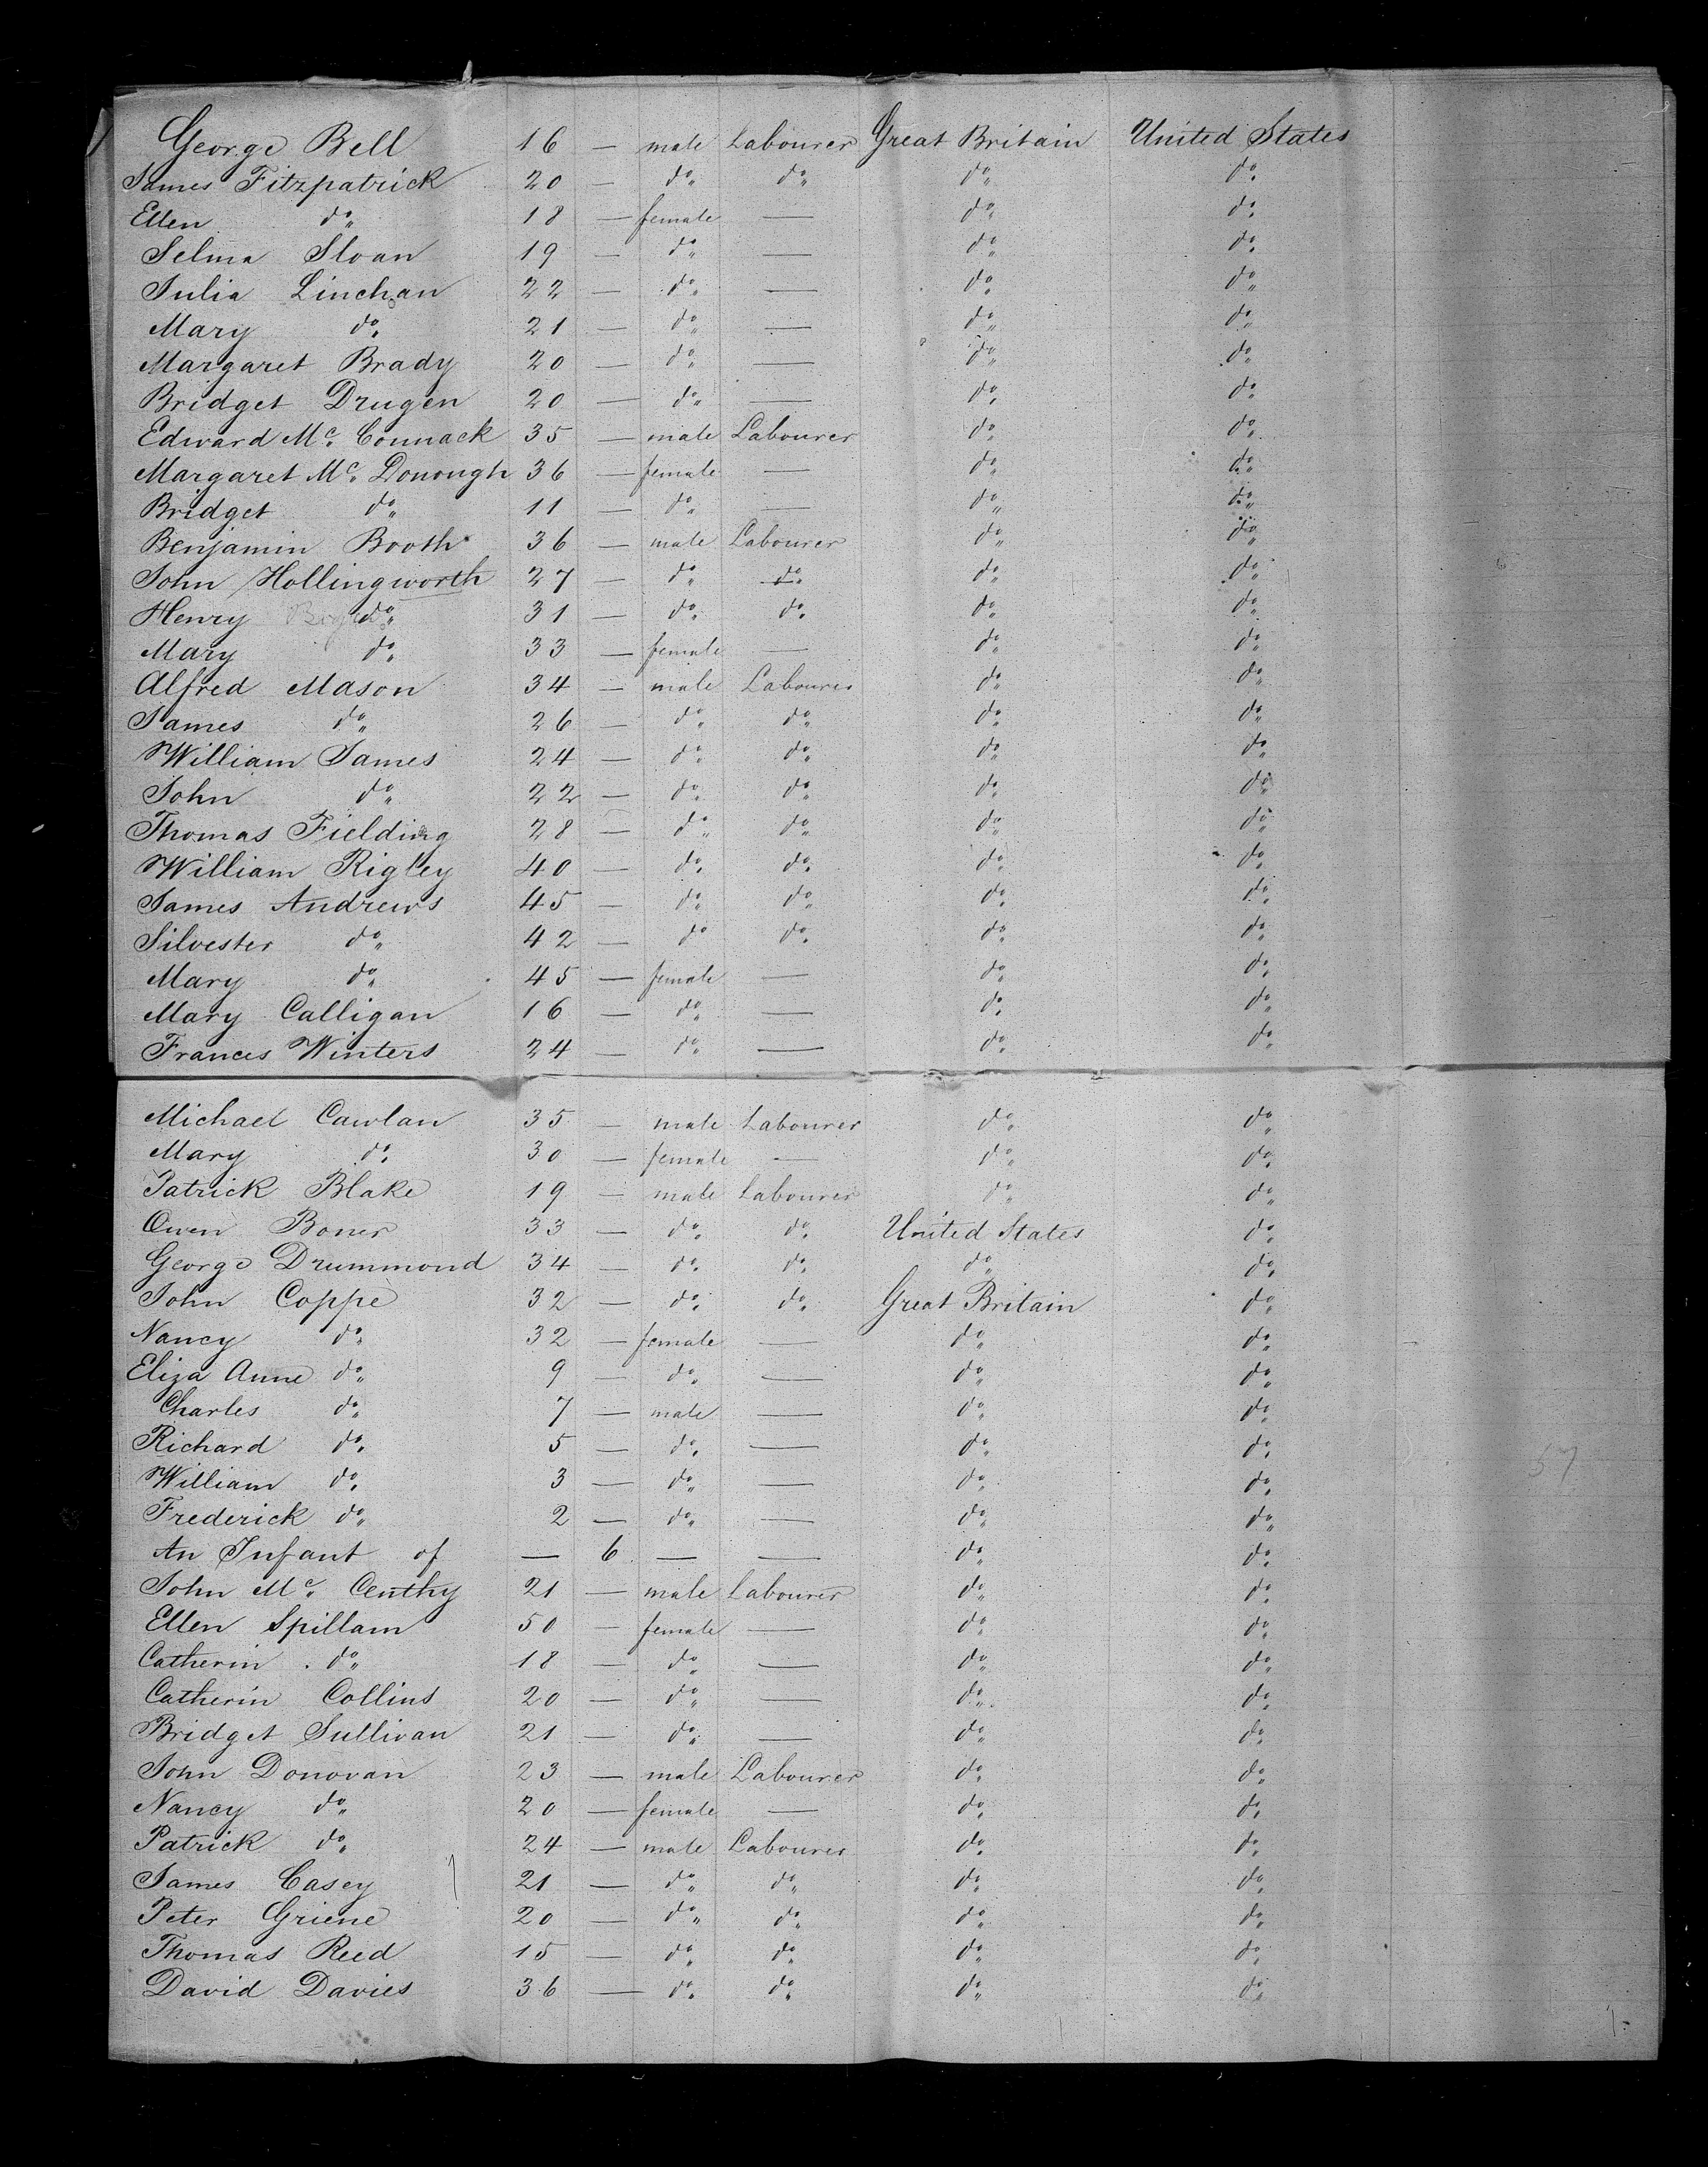 George Bell 16 — male Labourer Great Britain United States
James Fitzpatrick 20 — do do do do
Ellen do 18 — female — do do
Selma Sloan 19 — do — do do
Julia Linehan 22 — do — do do
Mary do 21 — do — do do
Margaret Brady 20 — do — do do
Bridget Drugen 20 — do — do do
Edward Mc. Connack 35 — male Labourer do do
Margaret Mc. Donough 36 — female — do do
Bridget do 11 — do — do do
Benjamin Booth 36 — male Labourer do do
John Hollingworth 27 — do do do do
Henry do 31 — do do do do
Mary do 33 — female — do do
Alfred Mason 34 — male Labourer do do
James do 26 — do do do do
William James 24 — do do do do
John do 22 — do do do do
Thomas Fielding 28 — do do do do
William Rigley 40 — do do do do
James Andrews 45 — do do do do
Silvester do 42 — do do do do
Mary do 45 — female — do do
Mary Calligan 16 — do — do do
Frances Winters 24 — do — do do
Michael Cawlan 35 — male Labourer do do
Mary do 30 — female — do do
Patrick Blake 19 — male Labourer do do
Owen Boner 33 — do do United States do
George Drummond 34 — do do do do
John Coppe 32 — do do Great Britain do
Nancy do 32 — female — do do
Eliza Anne do 9 — do — do do
Charles do 7 — male — do do
Richard do 5 — do — do do
William do 3 — do — do do
Frederick do 2 — do — do do
An Infant of — 6 — — do do
John Mc. Centhy 21 — male Labourer do do
Ellen Spillam 50 — female — do do
Catherin do 18 — do — do do
Catherin Collins 20 — do — do do
Bridget Sullivan 21 — do — do do
John Donovan 23 — male Labourer do do
Nancy do 20 — female — do do
Patrick do 24 — male Labourer do do
James Casey 21 — do do do do
Peter Griene 20 — do do do do
Thomas Reed 15 — do do do do
David Davies 36 — do do do do
57